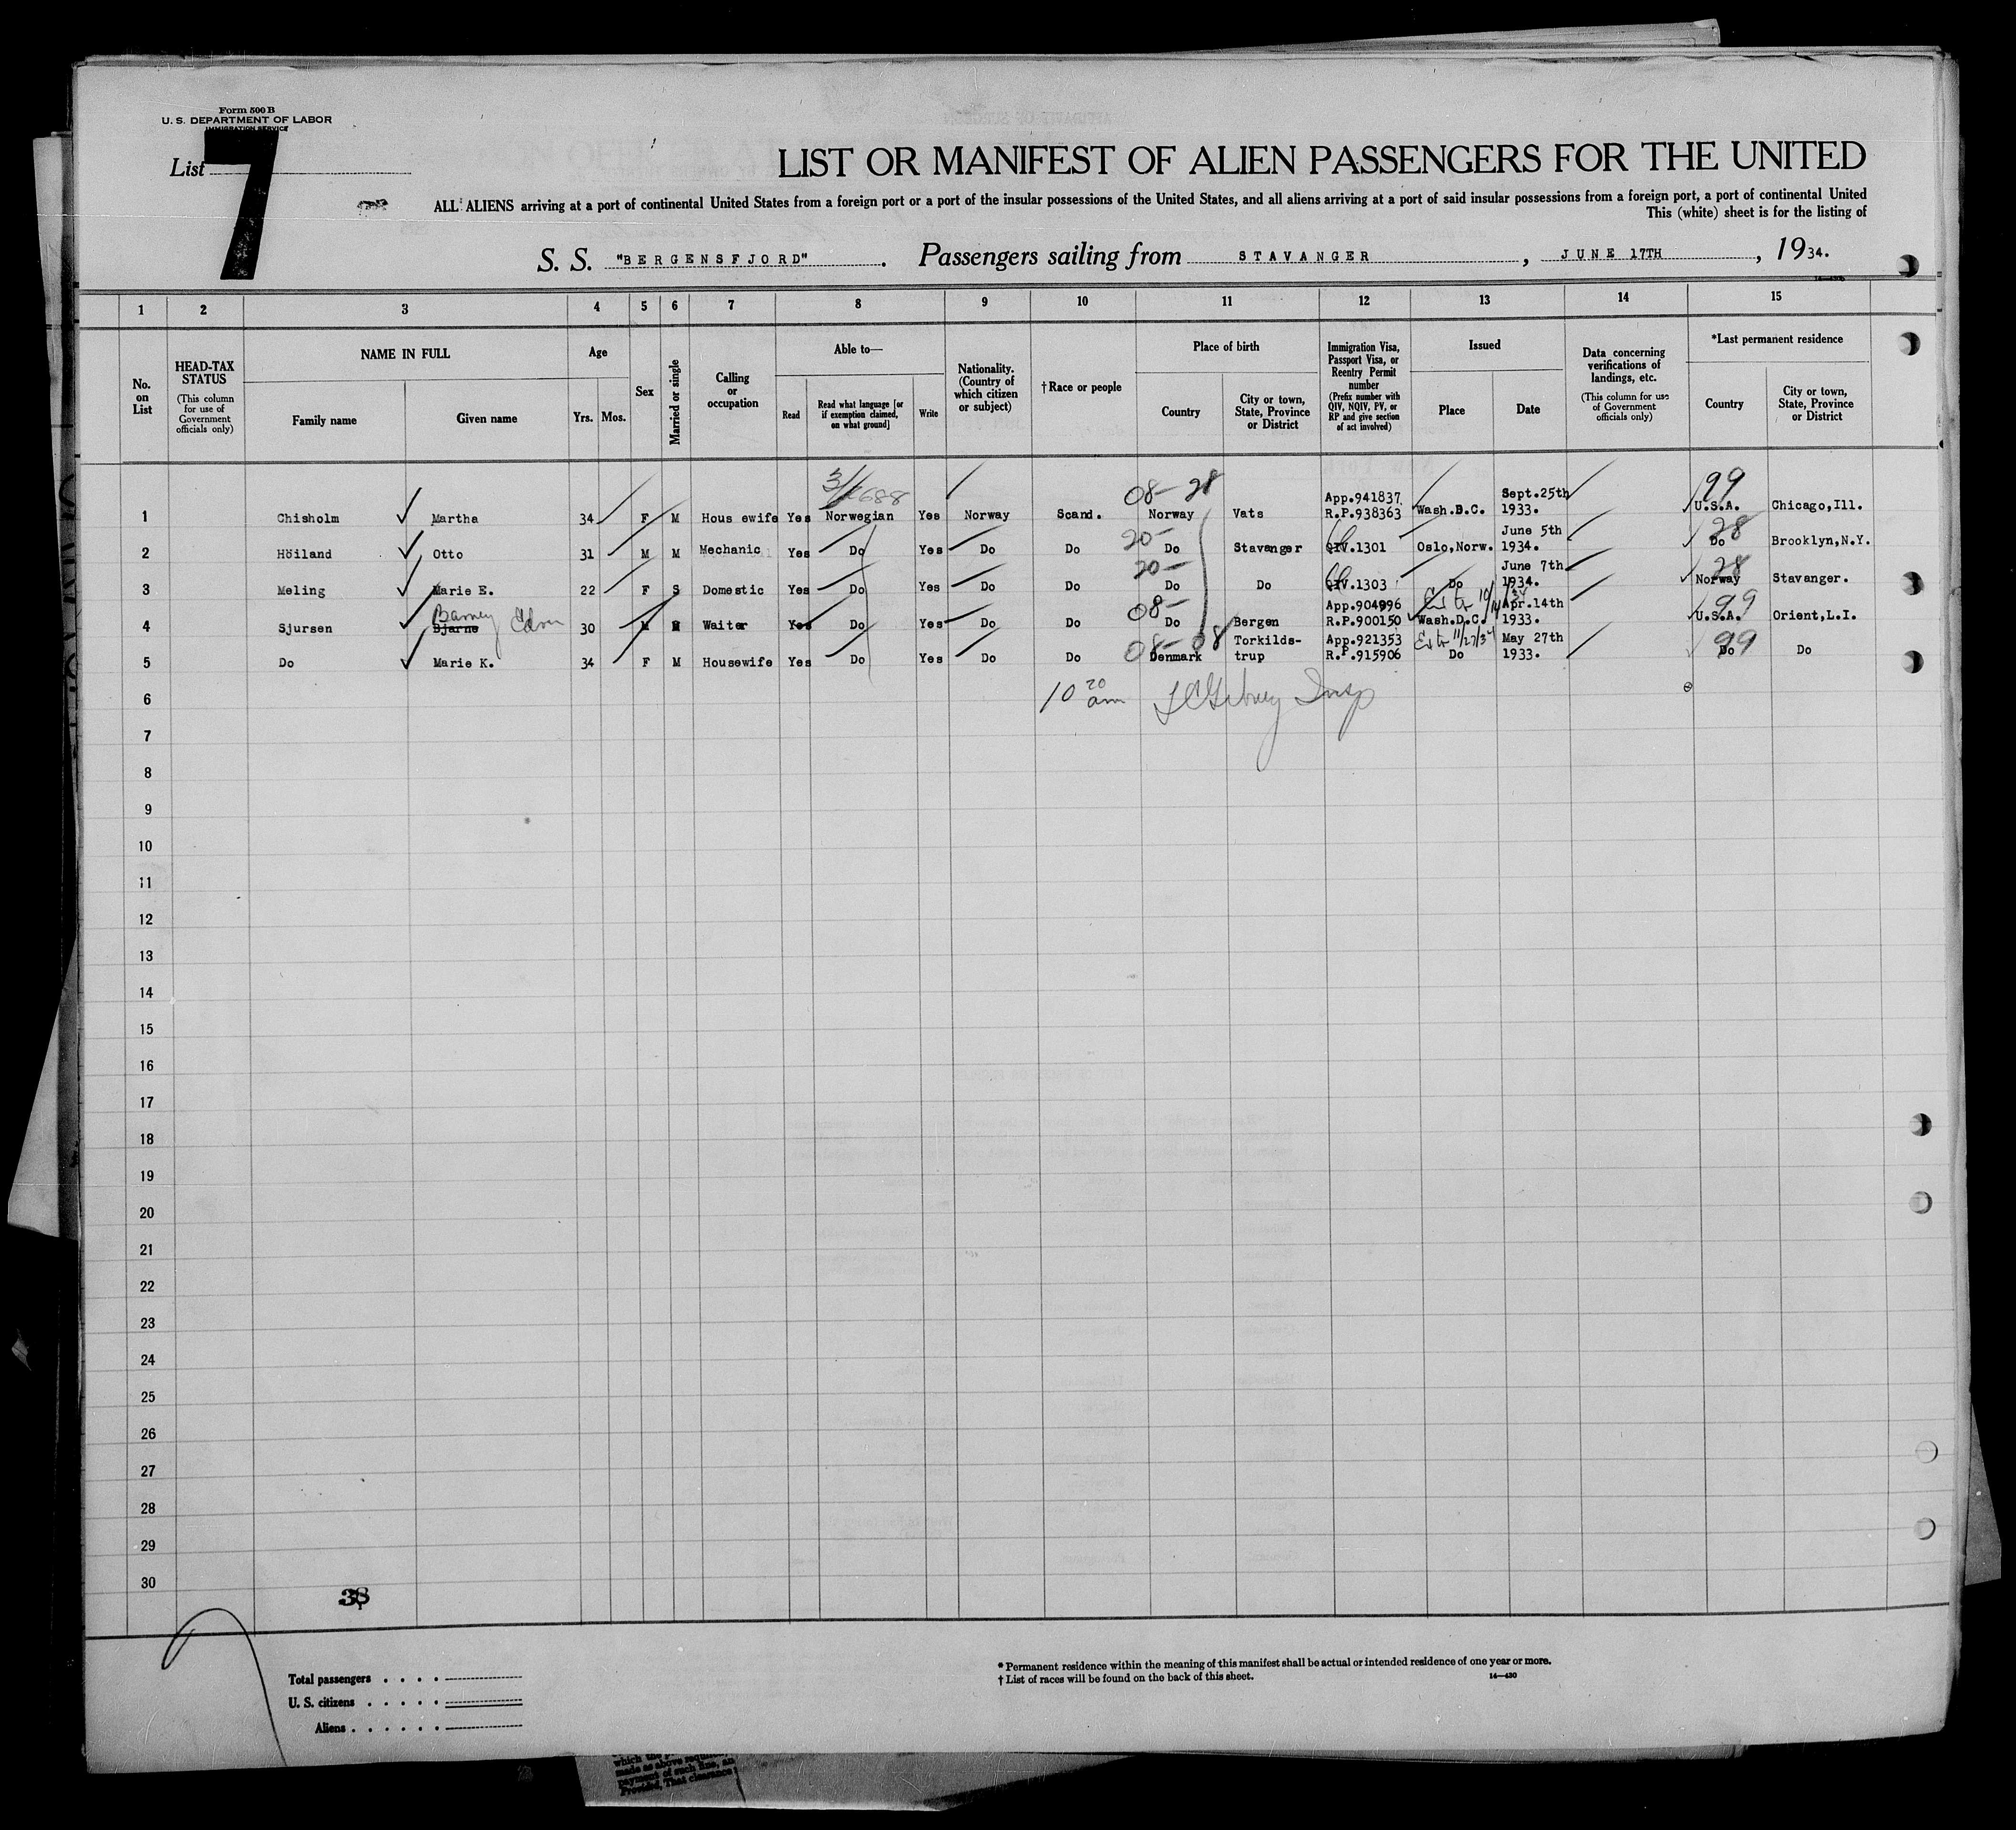 Form 500 B
U. S. DEPARTMENT OF LABOR
IMMIGRATION SERVICE
List 7
LIST OR MANIFEST OF ALIEN PASSENGERS FOR THE UNITED
ALL ALIENS arriving at a port of continental United States from a foreign port or a port of the insular possessions of the United States, and all aliens arriving at a port of said insular possessions from a foreign port, a port of continental United
This (white) sheet is for the listing of
S. S. "BERGENSFJORD". Passengers sailing from STAVANGER, JUNE 17TH, 1934.
1 2 3 4 5 6 7 8 9 10 11 12 13 14 15
No. on List
HEAD-TAX STATUS (This column for use of Government officials only)
NAME IN FULL
Family name
Given name
Age
Yrs. Mos.
Sex
Married or single
Calling or occupation
Able to—
Read
Read what language [or if exemption claimed, on what ground]
Write
Nationality. (Country of which citizen or subject)
† Race or people
Place of birth
Country
City or town, State, Province or District
Immigration Visa, Passport Visa, or Reentry Permit number (Prefix number with QIV, NQIV, PV, or RP and give section of act involved)
Issued
Place
Date
Data concerning verifications of landings, etc. (This column for use of Government officials only)
*Last permanent residence
Country
City or town, State, Province or District
08- 28 App.941837 Sept.25th 99
1 Chisholm Martha 34 F M Hous ewife Yes Norwegian Yes Norway Scand. Norway Vats R.P.938363 Wash.D.C. 1933. U.S.A. Chicago,Ill.
20- June 5th 28
2 Höiland Otto 31 M M Mechanic Yes Do Yes Do Do Do Stavanger QIV.1301 Oslo,Norw. 1934. Do Brooklyn,N.Y.
20- June 7th 28
3 Meling Marie E. 22 F S Domestic Yes Do Yes Do Do Do Do QIV.1303 Do 1934. Norway Stavanger.
Barney 08- App.904996 Apr.14th 99
4 Sjursen Bjarne 30 M M Waiter Yes Do Yes Do Do Do Bergen R.P.900150 Wash.D.C. 1933. U.S.A. Orient,L.I.
08- 08 Torkilds- App.921353 11/27/34 May 27th 99
5 Do Marie K. 34 F M Housewife Yes Do Yes Do Do Denmark trup R.P.915906 Do 1933. Do Do
6 10 20 am Insp
7
8
9
10
11
12
13
14
15
16
17
18
19
20
21
22
23
24
25
26
27
28
29
30
38
Total passengers
U. S. citizens
Aliens
* Permanent residence within the meaning of this manifest shall be actual or intended residence of one year or more.
† List of races will be found on the back of this sheet.
14—430
made as above
payment of such fine, an
Provided, That clearance